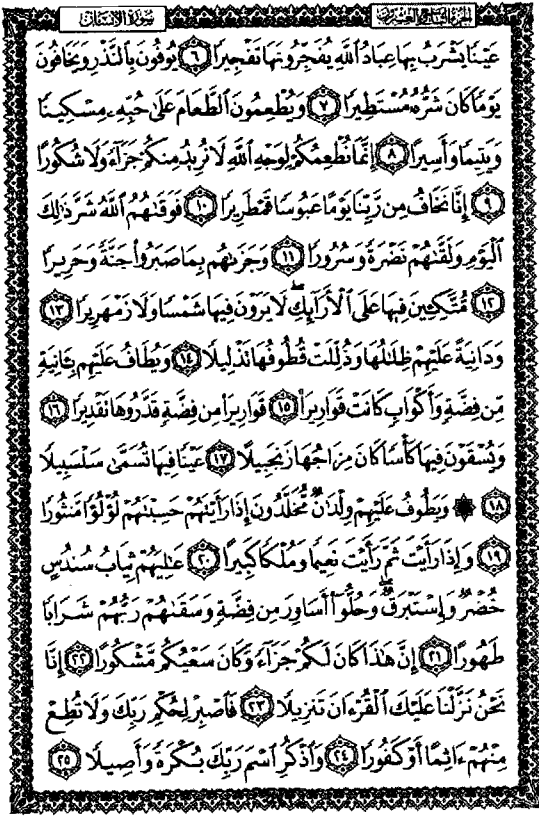 سورة الإنسان
الجزء التاسع والعشرون
عَيْنًا يَشْرَبُ بِهَا عِبَادُ ٱللَّهِ يُفَجِّرُونَهَا تَفْجِيرًا ٦ يُوفُونَ بِٱلنَّذْرِ وَيَخَافُونَ
يَوْمًا كَانَ شَرُّهُۥ مُسْتَطِيرًا ٧ وَيُطْعِمُونَ ٱلطَّعَامَ عَلَىٰ حُبِّهِۦ مِسْكِينًا
وَيَتِيمًا وَأَسِيرًا ٨ إِنَّمَا نُطْعِمُكُمْ لِوَجْهِ ٱللَّهِ لَا نُرِيدُ مِنكُمْ جَزَآءً وَلَا شُكُورًا
٩ إِنَّا نَخَافُ مِن رَّبِّنَا يَوْمًا عَبُوسًا قَمْطَرِيرًا ١٠ فَوَقَىٰهُمُ ٱللَّهُ شَرَّ ذَٰلِكَ
ٱلْيَوْمِ وَلَقَّىٰهُمْ نَضْرَةً وَسُرُورًا ١١ وَجَزَىٰهُم بِمَا صَبَرُوا۟ جَنَّةً وَحَرِيرًا
١٢ مُّتَّكِـِٔينَ فِيهَا عَلَى ٱلْأَرَآئِكِ ۖ لَا يَرَوْنَ فِيهَا شَمْسًا وَلَا زَمْهَرِيرًا ١٣
وَدَانِيَةً عَلَيْهِمْ ظِلَٰلُهَا وَذُلِّلَتْ قُطُوفُهَا تَذْلِيلًا ١٤ وَيُطَافُ عَلَيْهِم بِـَٔانِيَةٍ
مِّن فِضَّةٍ وَأَكْوَابٍ كَانَتْ قَوَارِيرَا۠ ١٥ قَوَارِيرَا۟ مِن فِضَّةٍ قَدَّرُوهَا تَقْدِيرًا ١٦
وَيُسْقَوْنَ فِيهَا كَأْسًا كَانَ مِزَاجُهَا زَنجَبِيلًا ١٧ عَيْنًا فِيهَا تُسَمَّىٰ سَلْسَبِيلًا
١٨ ۞ وَيَطُوفُ عَلَيْهِمْ وِلْدَٰنٌ مُّخَلَّدُونَ إِذَا رَأَيْتَهُمْ حَسِبْتَهُمْ لُؤْلُؤًا مَّنثُورًا
١٩ وَإِذَا رَأَيْتَ ثَمَّ رَأَيْتَ نَعِيمًا وَمُلْكًا كَبِيرًا ٢٠ عَٰلِيَهُمْ ثِيَابُ سُندُسٍ
خُضْرٌ وَإِسْتَبْرَقٌ ۖ وَحُلُّوٓا۟ أَسَاوِرَ مِن فِضَّةٍ وَسَقَىٰهُمْ رَبُّهُمْ شَرَابًا
طَهُورًا ٢١ إِنَّ هَٰذَا كَانَ لَكُمْ جَزَآءً وَكَانَ سَعْيُكُم مَّشْكُورًا ٢٢ إِنَّا
نَحْنُ نَزَّلْنَا عَلَيْكَ ٱلْقُرْءَانَ تَنزِيلًا ٢٣ فَٱصْبِرْ لِحُكْمِ رَبِّكَ وَلَا تُطِعْ
مِنْهُمْ ءَاثِمًا أَوْ كَفُورًا ٢٤ وَٱذْكُرِ ٱسْمَ رَبِّكَ بُكْرَةً وَأَصِيلًا ٢٥